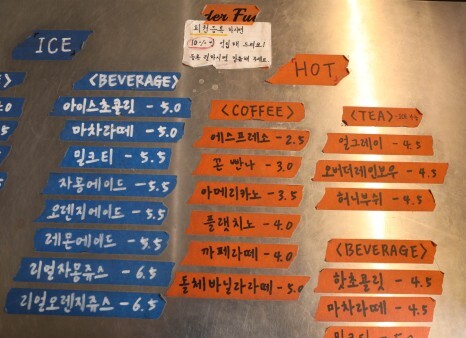 ICE
<BEVERAGE>
아이스초콜릿 - 5.0
마차라떼 - 5.0
밀크티 - 5.5
자몽에이드 - 5.5
오렌지에이드 - 5.5
레몬에이드 - 5.5
리얼자몽쥬스 - 6.5
리얼오렌지쥬스 - 6.5
10%
HOT
<COFFEE>
에스프레소 - 2.5
꼰빤나 - 3.0
아메리카노 - 3.5
플랫치노 - 4.0
까페라떼 - 4.0
돌체바닐라라떼 - 5.0
<TEA>
얼그레이 - 4.5
오버더레인보우 - 4.5
허니부쉬 - 4.5
<BEVERAGE>
핫초콜릿 - 4.5
마차라떼 - 4.5
밀크티